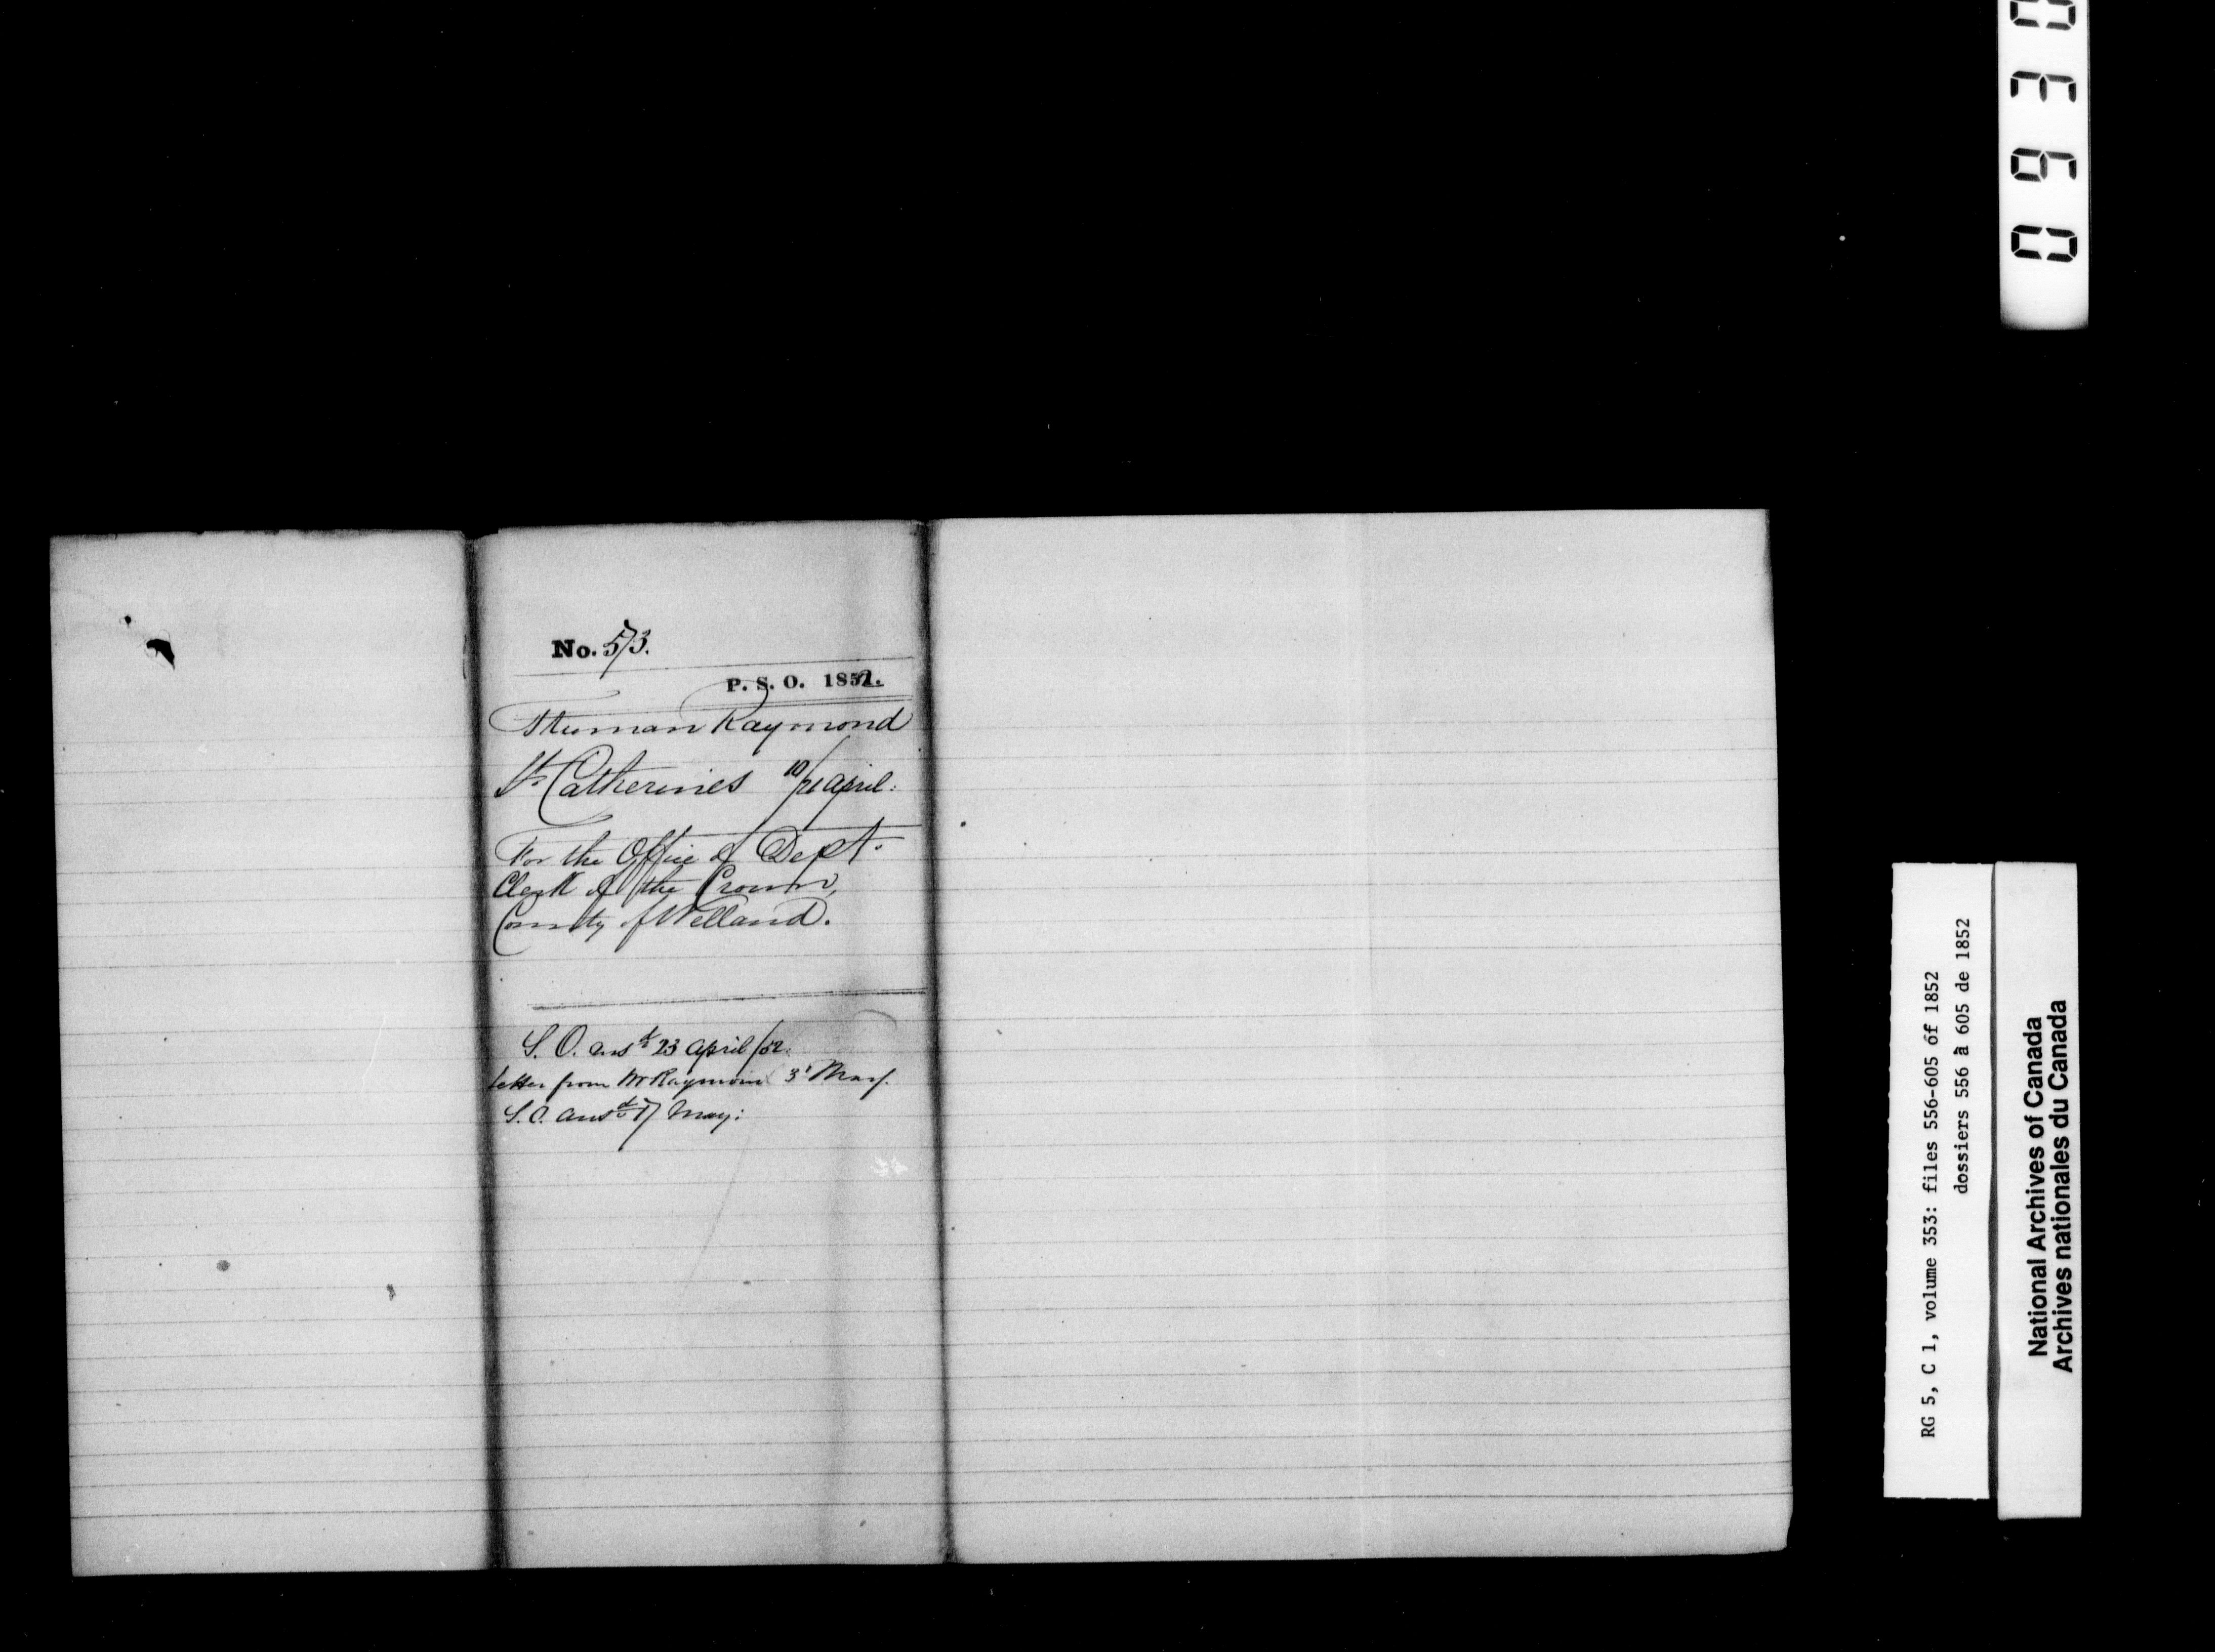 No. 573.
P. S. O. 1852.
Truman Raymond
St. Catherines 10/21 April.
For the Office of Dept.
Clerk of the Crown,
County of Welland.
S. O. ansd 23 April /52.
letter from Mr Raymond 3d May.
S. O. ansd 17 May:
0930
RG 5, C 1, volume 353: files 556-605 of 1852
dossiers 556 à 605 de 1852
National Archives of Canada
Archives nationales du Canada